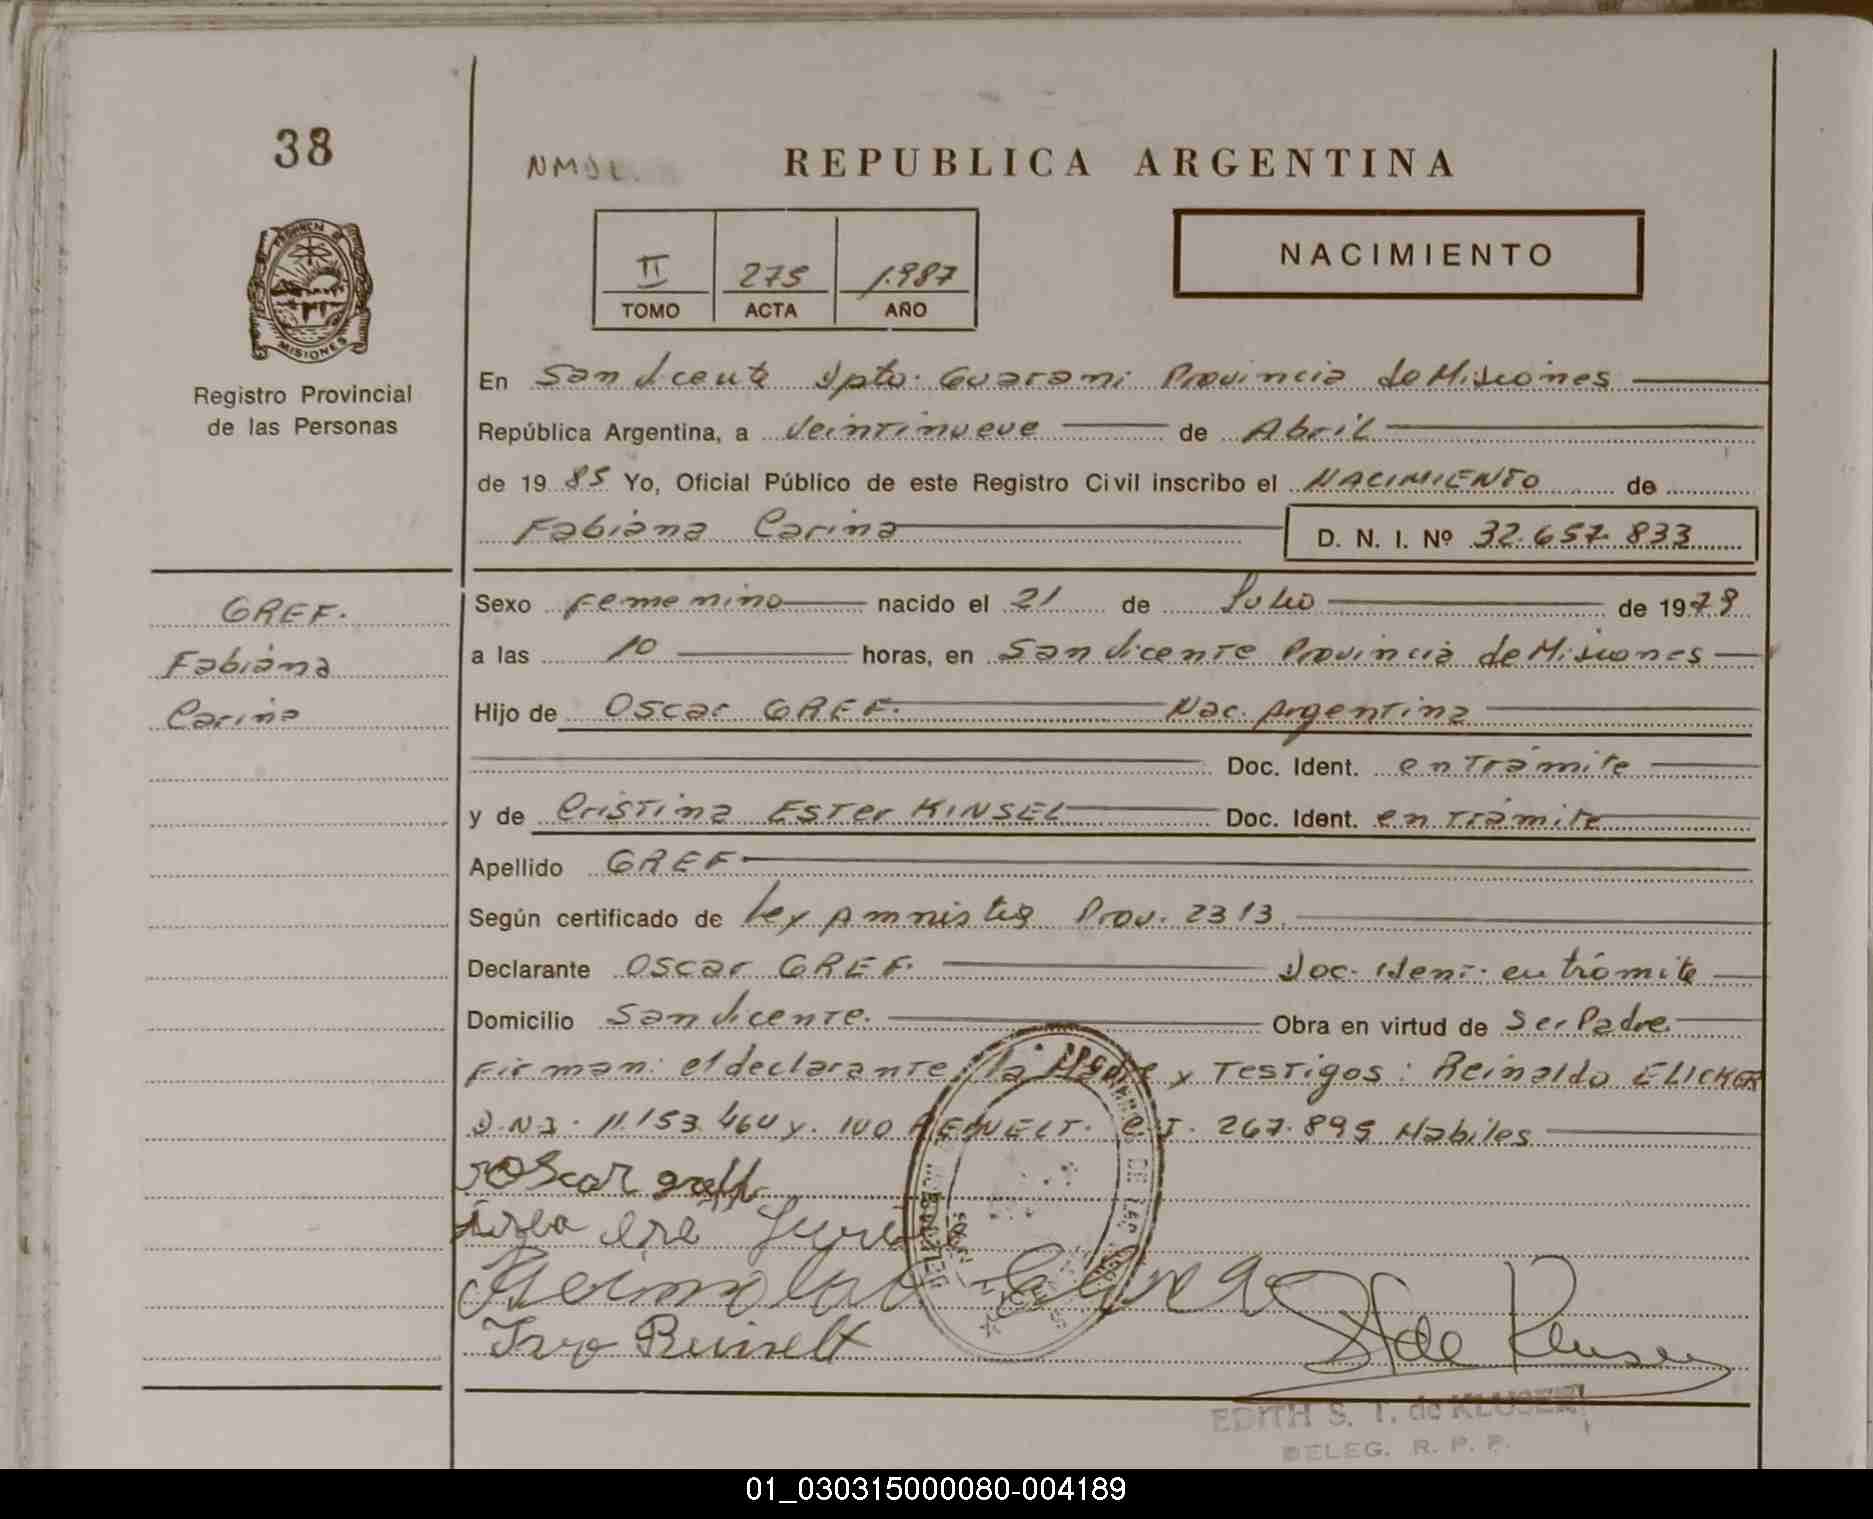 38
NMDL.
REPUBLICA ARGENTINA
II
TOMO
275
ACTA
1.987
AÑO
NACIMIENTO
MISIONES
Registro Provincial
de las Personas
En San Vicente Dpto. Guarani Provincia de Misiones
República Argentina, a Veintinueve de Abril
de 19 85 Yo, Oficial Público de este Registro Civil inscribo el NACIMIENTO de
Fabiana Carina D. N. I. Nº 32.657.833
GREF.
Fabiana
Carina
Sexo Femenino nacido el 21 de Julio de 1979
a las 10 horas, en San Vicente Provincia de Misiones
Hijo de Oscar GREF. Nac. Argentina
Doc. Ident. en Trámite
y de Cristina Ester KINSEL Doc. Ident. en Trámite
Apellido GREF
Según certificado de Ley Amnistia Prov. 2313.
Declarante Oscar GREF. Doc. Ident. en trámite
Domicilio San Vicente. Obra en virtud de Ser Padre
Firman: el declarante, la Madre y Testigos: Reinaldo ELICKER
D.N.I. 11.153.460 y. IVO C.I. 267.895 Habiles
Oscar greff
Ivo
de Kluser
EDITH S. T. de KLUSER
DELEG. R. P. P.
01_030315000080-004189